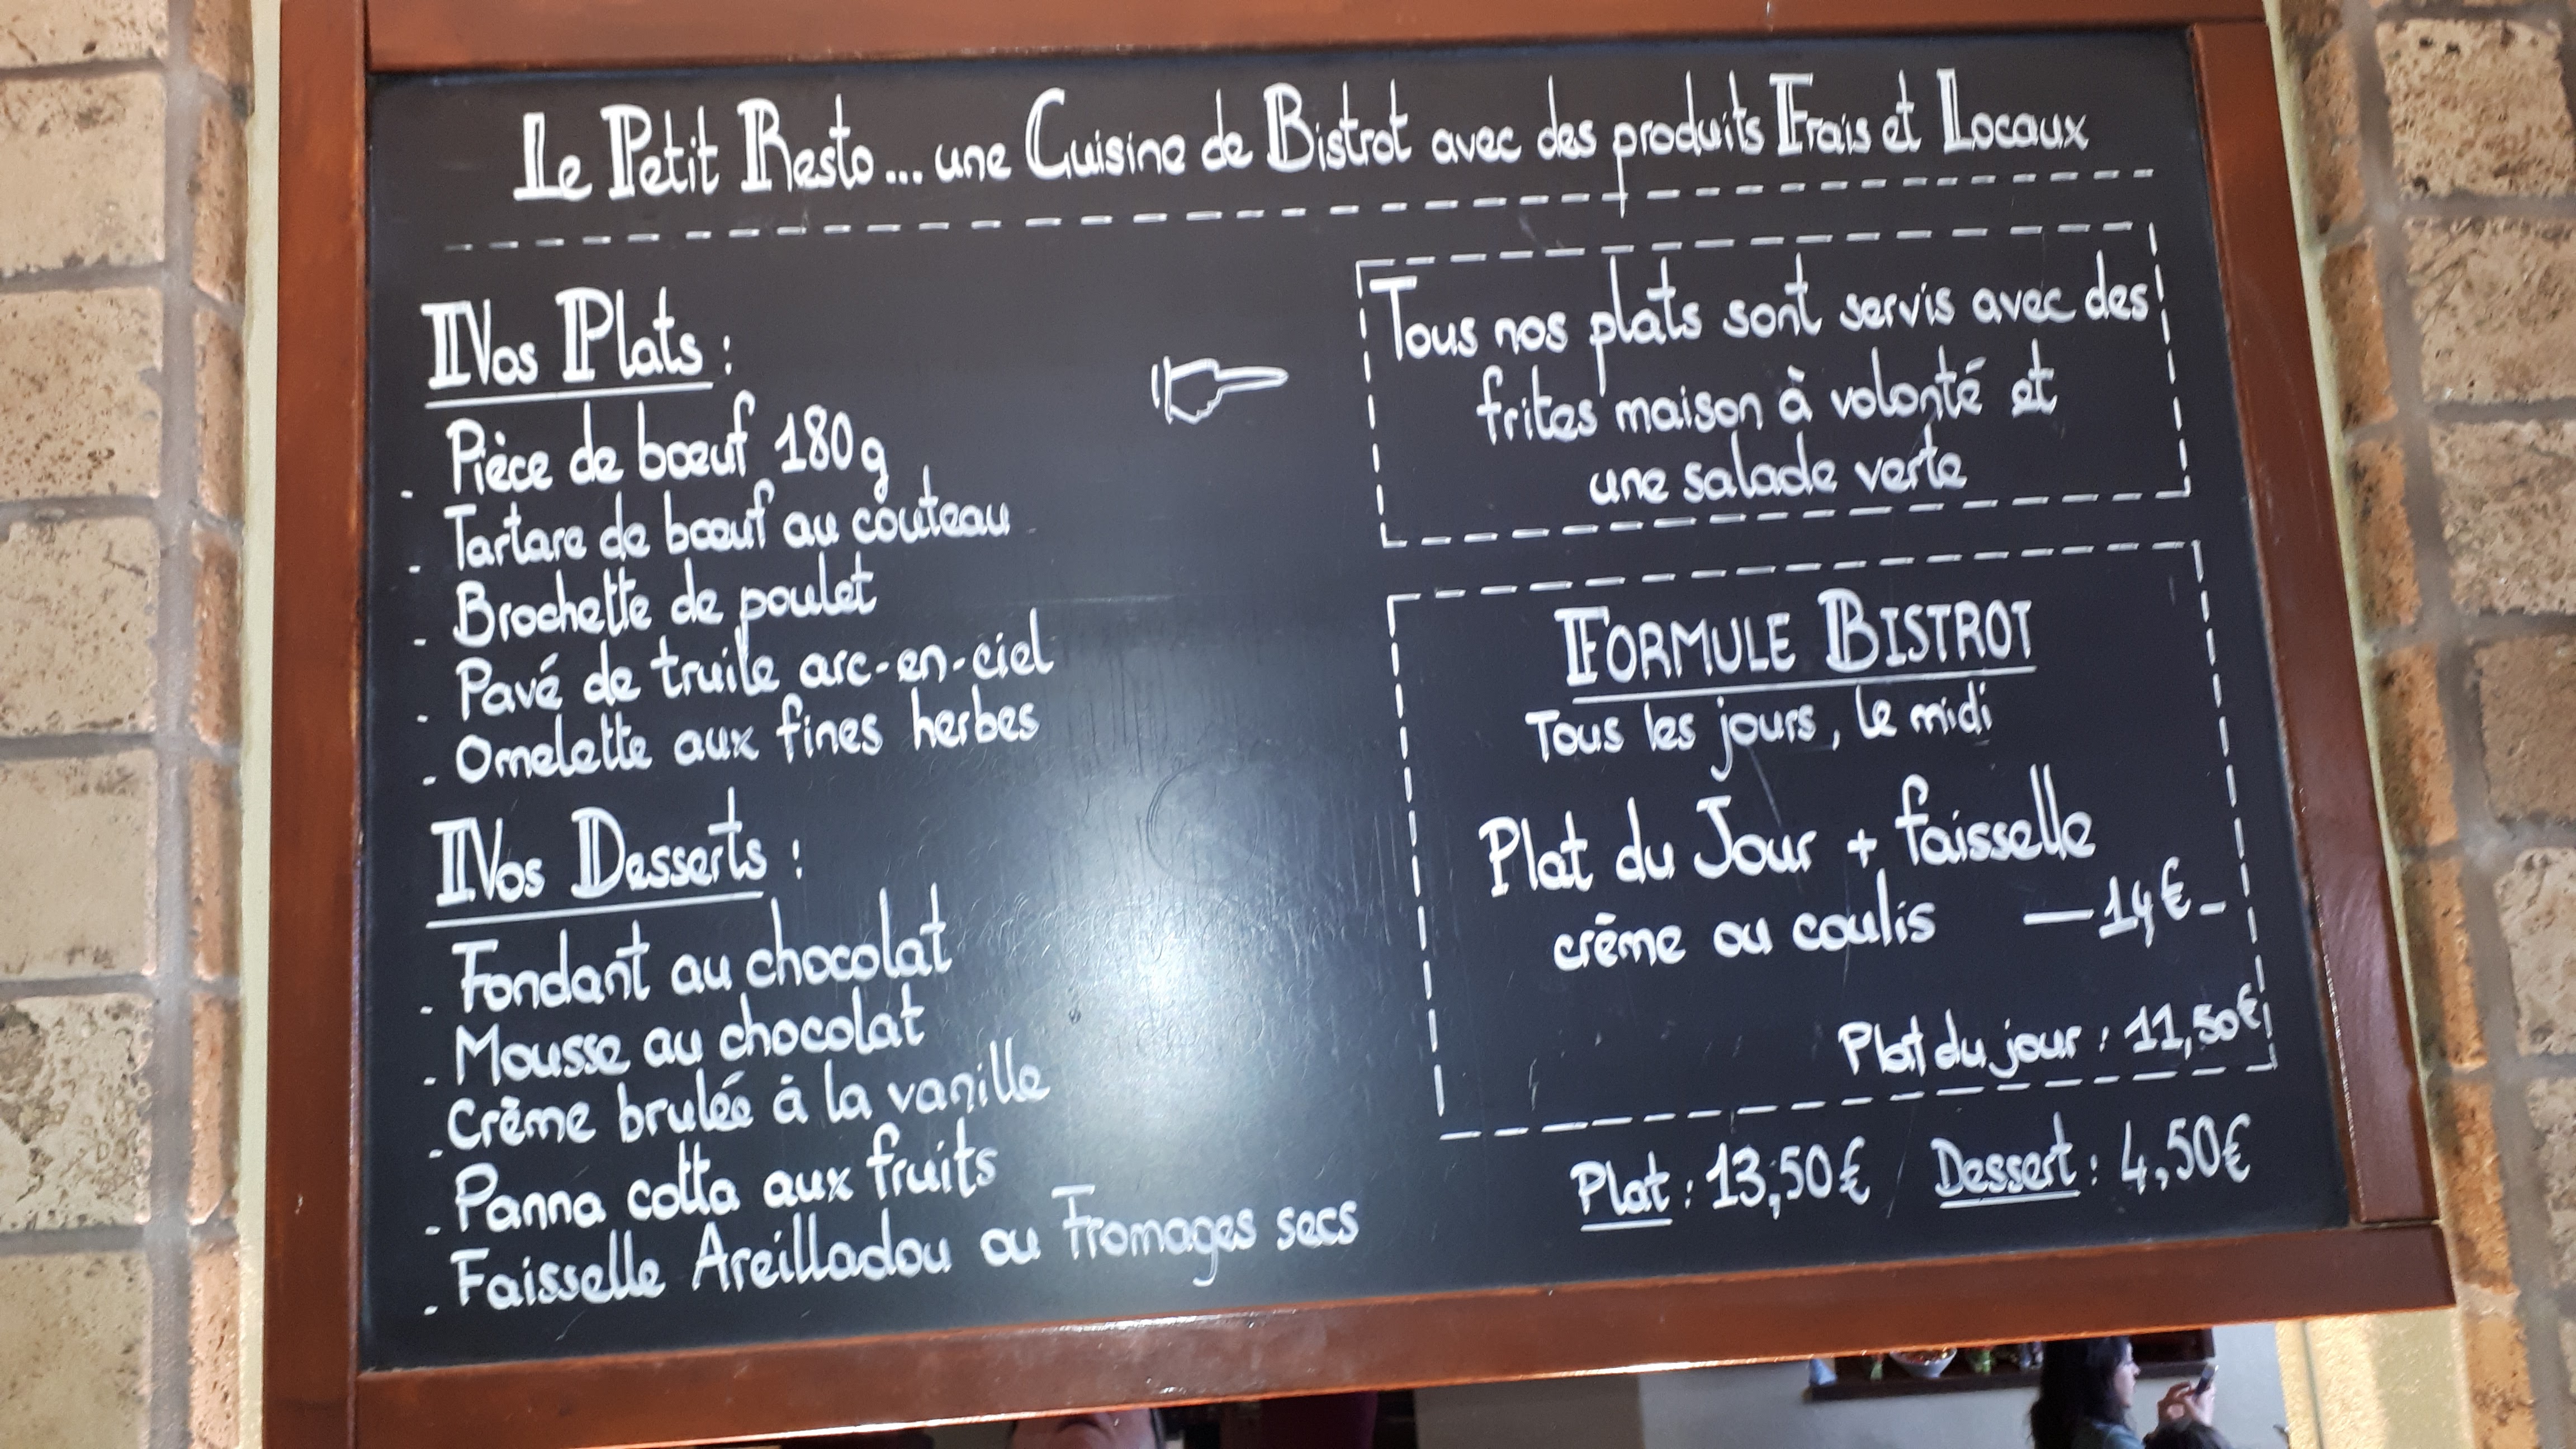 Le Petit Resto... une Cuisine de Bistrot avec des produits Frais et Locaux
Nos Plats :
- Pièce de bœuf 180g
- Tartare de bœuf au couteau
- Brochette de poulet
- Pavé de truite arc-en-ciel
- Omelette aux fines herbes
Nos Desserts :
- Fondant au chocolat
- Mousse au chocolat
- Crème brulée à la vanille
- Panna cotta aux fruits
- Faisselle Areilladou ou Fromages secs
Tous nos plats sont servis avec des
frites maison à volonté et
une salade verte
FORMULE BISTROT
Tous les jours, le midi
Plat du Jour + faisselle
crème ou coulis — 14€ -
Plat du jour : 11,50€
Plat : 13,50€ Dessert : 4,50€